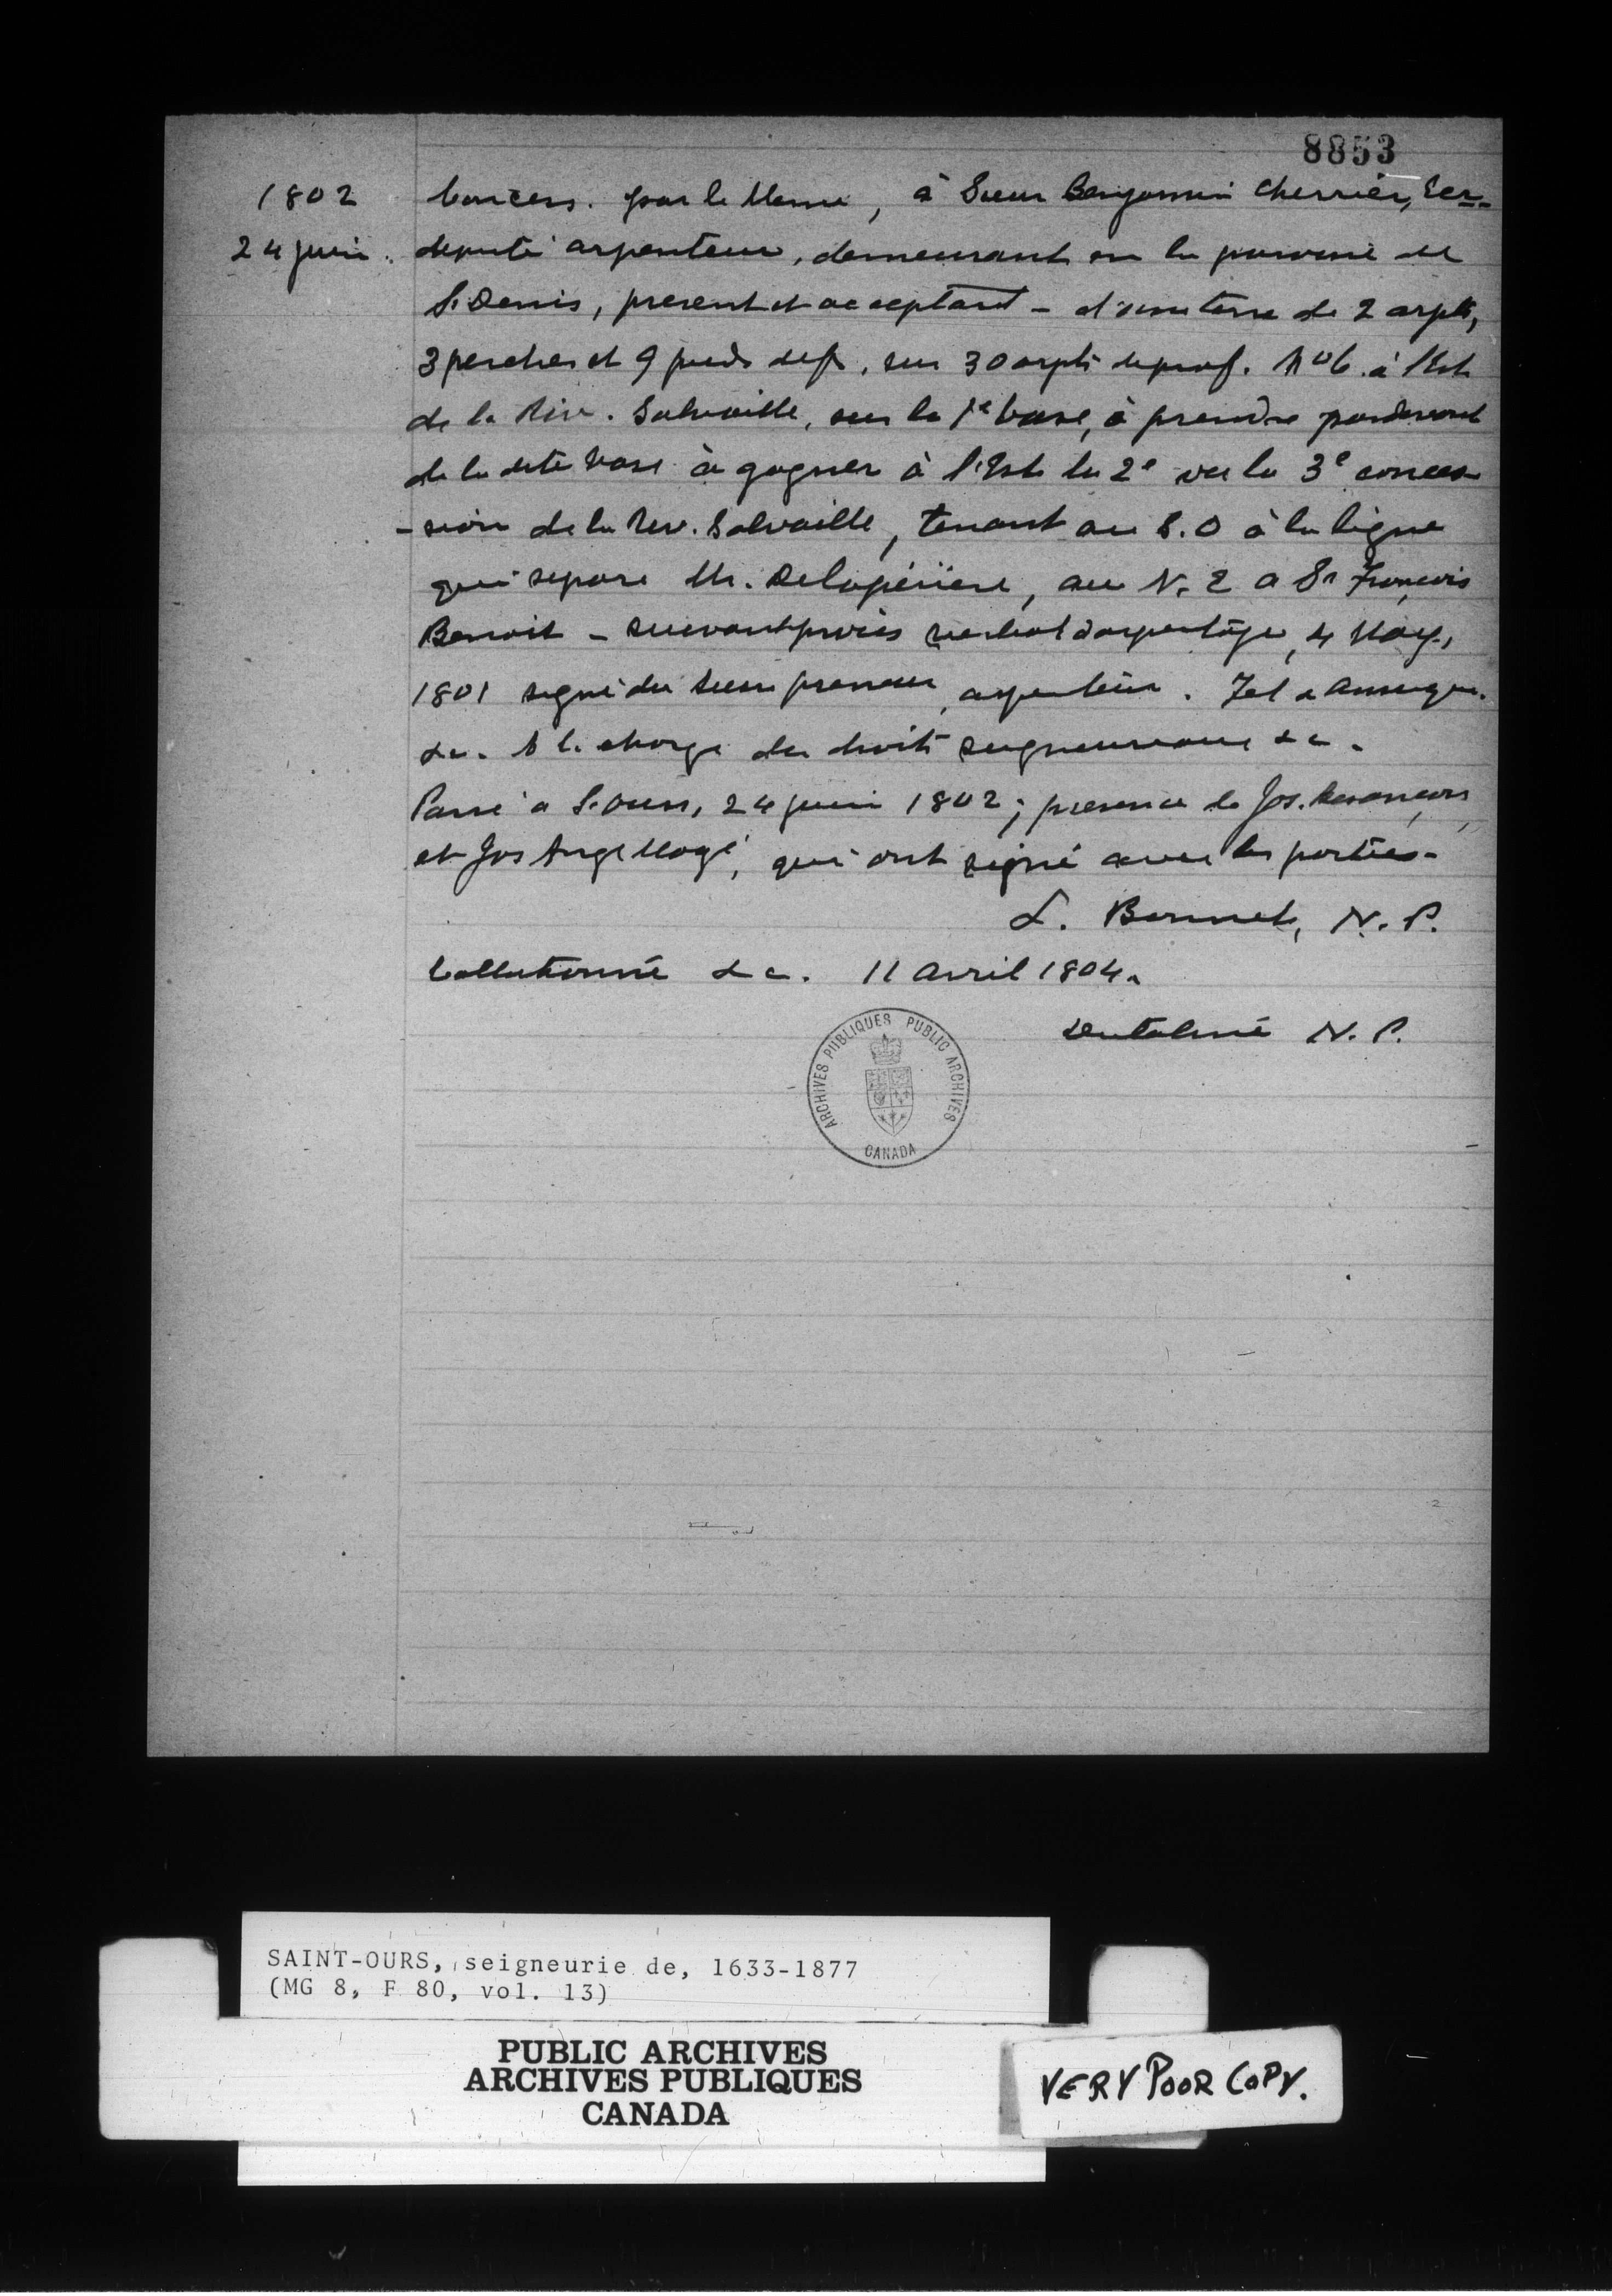 8853
1802
24 juin.
Concess. par le Meme, à Sieur Benjamin Cherrier, Ecr.
député arpenteur, demeurant en la paroisse de
St Denis, present et acceptant - d'une terre de 2 arpts,
3 perches et 9 pieds de f., sur 30 arpts de prof. No 6. à l'Est
de la Riv. Salvaille, sur la 1e base, à prendre par devant
de la dite base à gagner à l'Est la 2e ou la 3e conces-
-sion de la Riv. Salvaille, tenant au S.O à la ligne
qui separe Mr. Delapérière, au N.E a Sr François
Benoit - suivant procès verbal d'arpentage, 4 May,
1801 signé du sieur preneur, arpenteur. Tel & ainsi que.
&c. A la charge des droits seigneuriaux &c.
Passé a St Ours, 24 juin 1802; presence de Jos. Besançon,
et Jos Ange Mogé, qui ont signé avec les parties.
L. Bonnet, N.P.
Collationné &c. 11 avril 1804.
N.P.
ARCHIVES PUBLIQUES PUBLIC ARCHIVES
CANADA
SAINT-OURS, seigneurie de, 1633-1877
(MG 8, F 80, vol. 13)
PUBLIC ARCHIVES
ARCHIVES PUBLIQUES
CANADA
VERY POOR COPY.